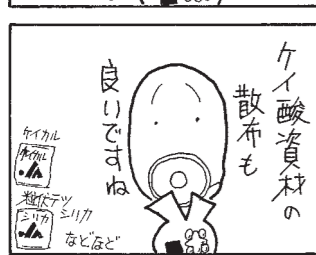 ケイ酸資材の
散布も
良いですね
ケイカル
ケイカル
粒状テツ
シリカ
シリカ
などなど